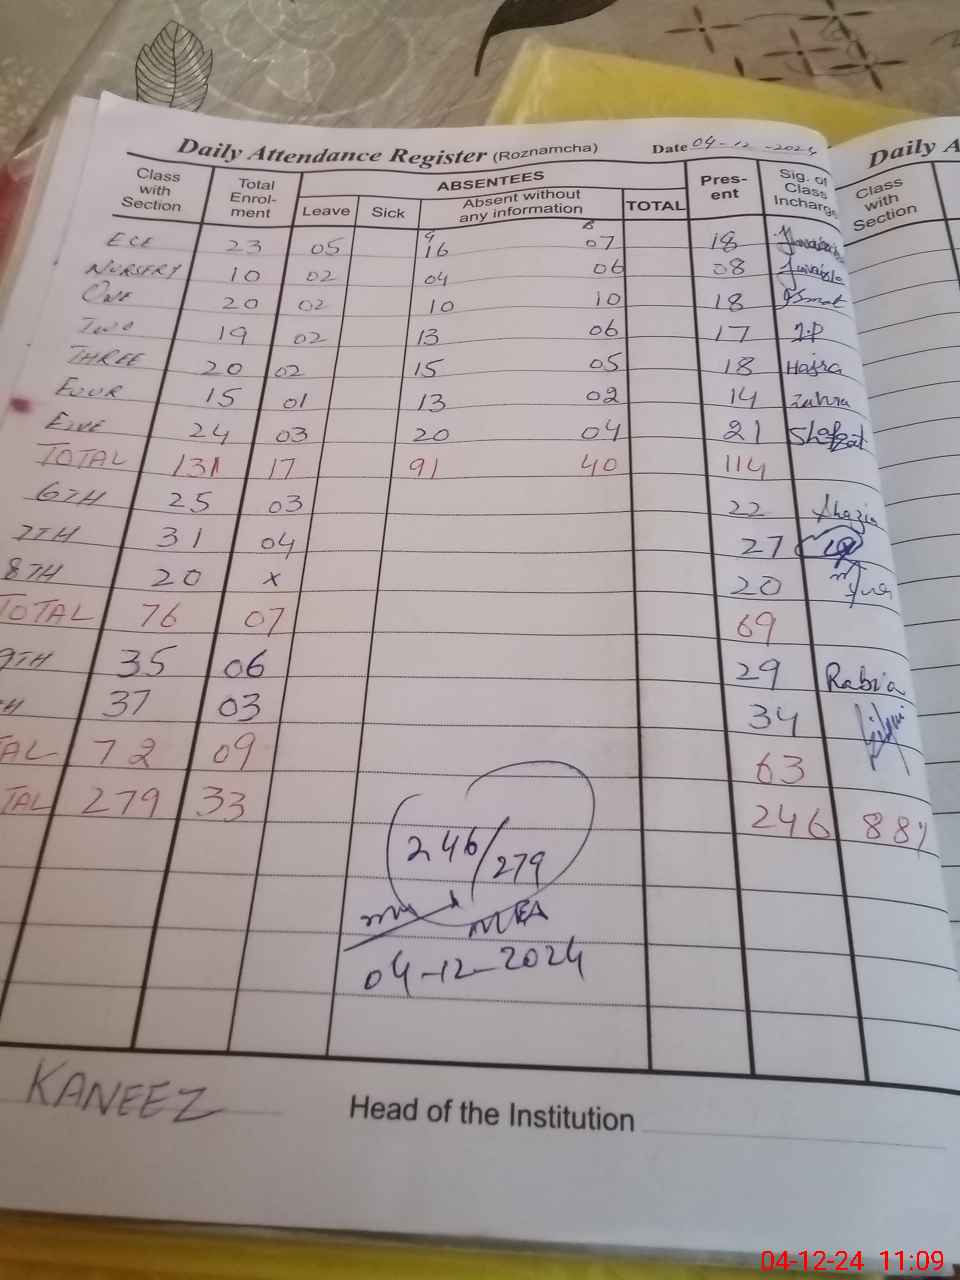 Daily Attendance Register (Roznamcha) Date 04-12-2024
Class with Section Total Enrol-ment ABSENTEES Pres-ent Sig. of Class Incharge
Leave Sick Absent without any information TOTAL
G B
ECE 23 05 16 07 18
NURSERY 10 02 04 06 08
ONE 20 02 10 10 18 Ismat
Two 19 02 13 06 17 I.P
THREE 20 02 15 05 18 Hajra
FOUR 15 01 13 02 14 Zahra
FIVE 24 03 20 04 21 Shafqat
TOTAL 131 17 91 40 114
6TH 25 03 22 Shazia
7TH 31 04 27
8TH 20 x 20
TOTAL 76 07 69
9TH 35 06 29 Rabia
H 37 03 34
TAL 72 09 63
TAL 279 33 246 88%
246/279
MEA
04-12-2024
KANEEZ
Head of the Institution
Daily A
Class with Section
04-12-24 11:09